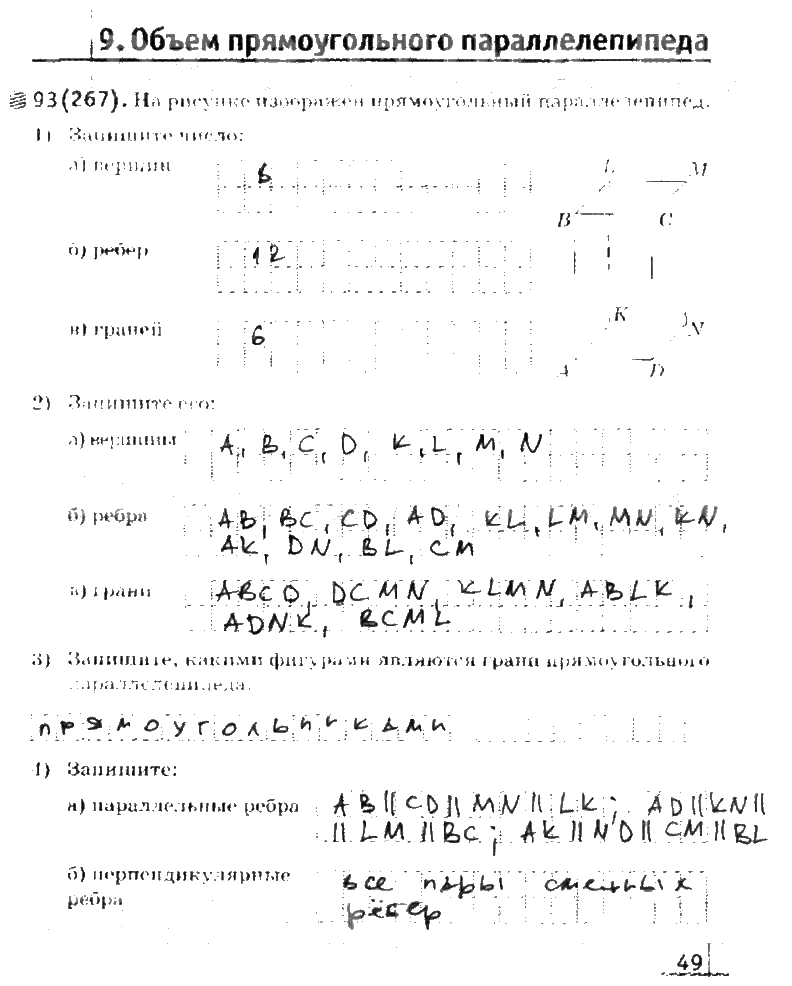 9. Объем прямоугольного параллелепипеда
93(267). На рисунке изображен прямоугольный параллелепипед.
1) Запишите число:
а) вершин
8
L M
B C
б) ребер
12
в) граней
6
K N
A D
2) Запишите его:
а) вершины
A, B, C, D, K, L, M, N
б) ребра
AB, BC, CD, AD, KL, LM, MN, KN,
AK, DN, BL, CM
в) грани
ABCD, DCMN, KLMN, ABLK,
ADNK, BCML
3) Запишите, какими фигурами являются грани прямоугольного
параллелепипеда.
прямоугольниками
4) Запишите:
а) параллельные ребра
AB||CD||MN||LK; AD||KN||
||LM||BC; AK||ND||CM||BL
б) перпендикулярные
ребра
все пары смежных
рёбер
49